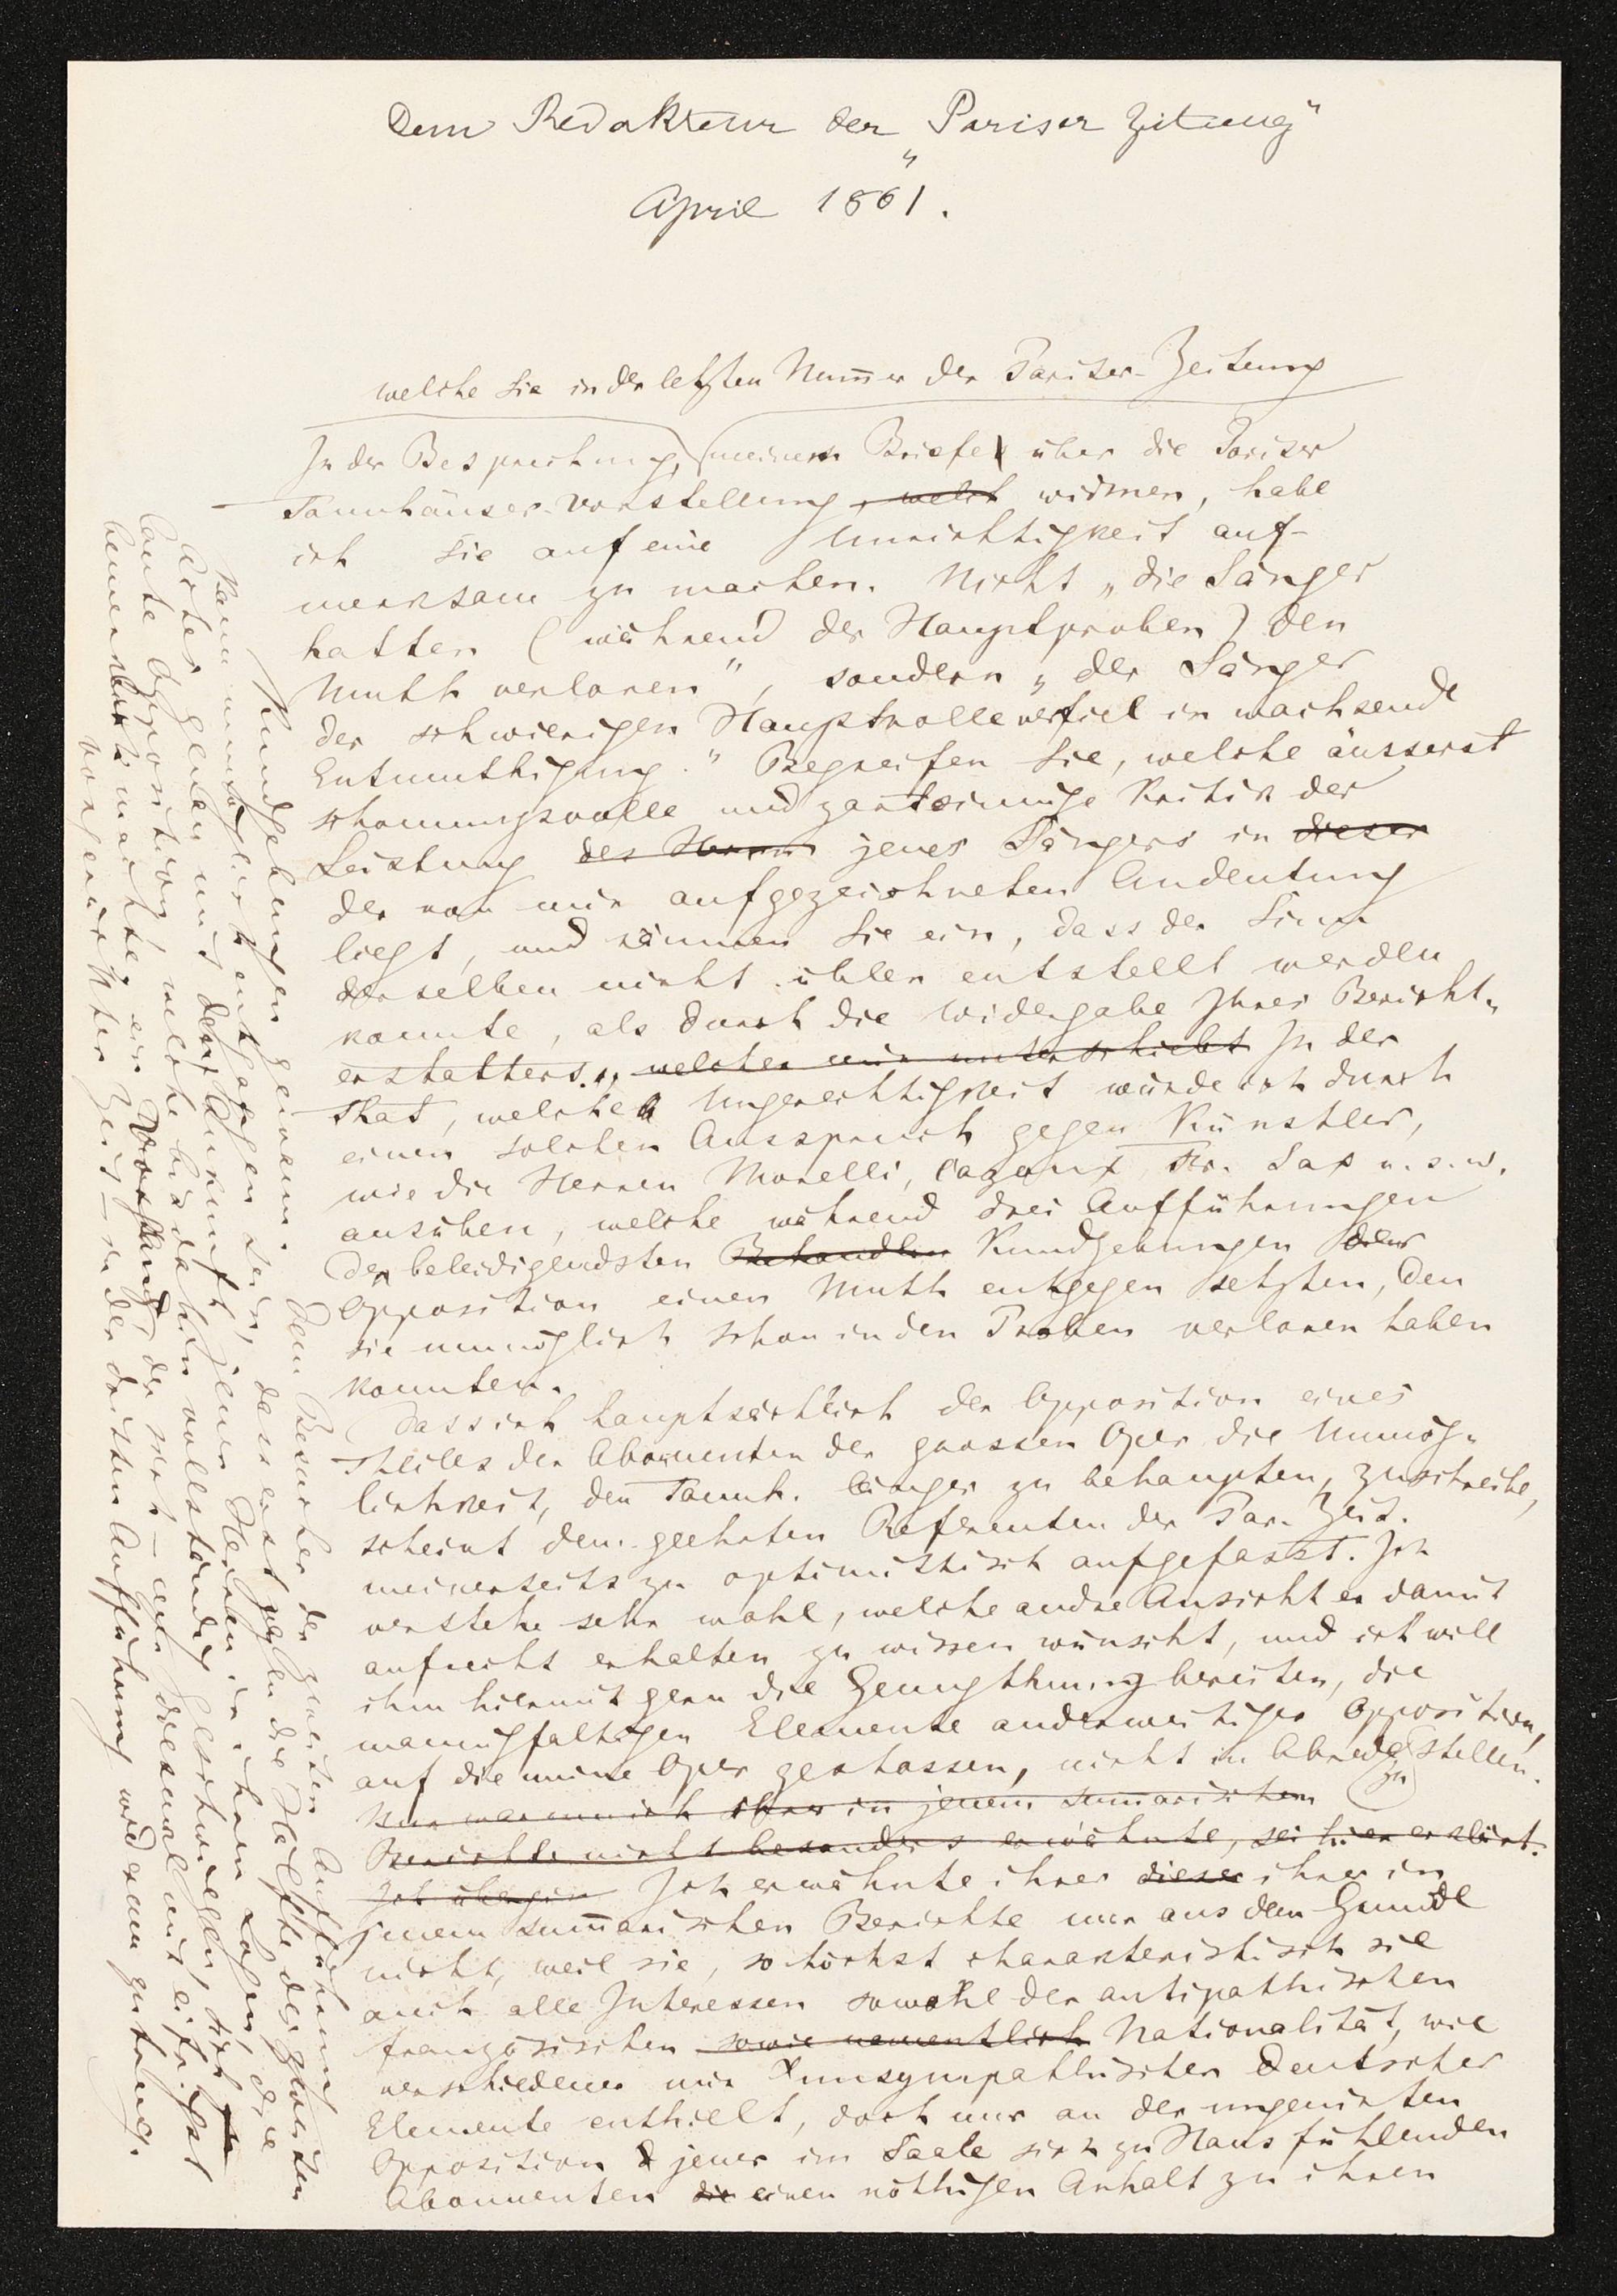 Dem Redakteur der „Pariser Zeitung“
April 1861.
welche Sie in der letzten Num̅er der Pariser-Zeitung
In der Besprechung, meinem Briefe über die Pariser
Tannhäuser-Vorstellung, welch widmen, habe
ich Sie auf eine Unrichtigkeit auf-
merksam zu machen. Nicht „die Sänger
hatten (während der Hauptproben) den
Muth verloren“, sondern „der Sänger
der schwierigen Hauptrolle verfiel in wachsende
Entmuthigung.“ Begreifen Sie, welche äusserst
schonungsvolle und zartsinnige Kritik der
Leistung des Herrn jenes Sängers in dieser
der von mir aufgezeichneten Andeutung
liegt, und räumen Sie ein, dass der Sinn
derselben nicht übler entstellt werden
konnte, als durch die Widergabe Ihres Bericht-
erstatters., welcher mir unterschiebt In der
That, welche Ungerechtigkeit würde ich durch
einen solchen Ausspruch gegen Künstler,
wie die Herren Morelli, Cazaux, Fr. Sax u. s. w.
ausüben, welche während drei Aufführungen
den beleidigendsten Behandlun Kundgebungen der
Opposition einen Muth entgegen setzten, den
sie unmöglich schon in den Proben verloren haben
konnten.
Dass ich hauptsächlich der Opposition eines
Theiles der Abonnenten der grossen Oper die Unmög-
lichkeit, den Tannh. länger zu behaupten, zuschreibe,
scheint dem geehrten Referenten der Par. Zeit.
meinerseits zu optimistisch aufgefasst. Ich
verstehe sehr wohl, welche andre Ansicht er damit
aufrecht erhalten zu wissen wünscht, und ich will
ihm hiermit gern die Genugthuung bereiten, die
mannigfaltigen Elemente anderweitiger Opposition,
auf die meine Oper gestossen, nicht in Abrede zu stellen.
Nur warum ich ihrer in jenem summarischen
Berichte nicht besonders erwähnte, sei hier erklärt.
Ich übergin Ich erwähnte ihrer dieser ihrer in
jenem sum̅arischen Berichte nur aus dem Grunde
nicht, weil sie, so höchst charakteristisch sie
auch alle Interessen sowohl der antipathischen
französischen sowie namentlich Nationalität, wie
verschiedener mir unsympathischer deutscher
Elemente enthielt, doch nur an der ungenirten
Opposition jener im Saale sich zu Haus fühlenden
Abonnenten die einen nöthigen Anhalt zu ihren
Kundgebungen gewann. Dem Besucher der zweiten Aufführung
kann unmöglich entgangen sein, dass erst gegen die Hälfte des zweiten
Actes, genau mit der Ankunft jener Herren in ihren Logen, die
laute Opposition, welche bis dahin vollständig geschwiegen, sich
bemerkbar machte, ein Umstand, der sich – und diesmal mit eifrigst
vorgerückter Zeit – in der dritten Aufführung wiederum zutrug.